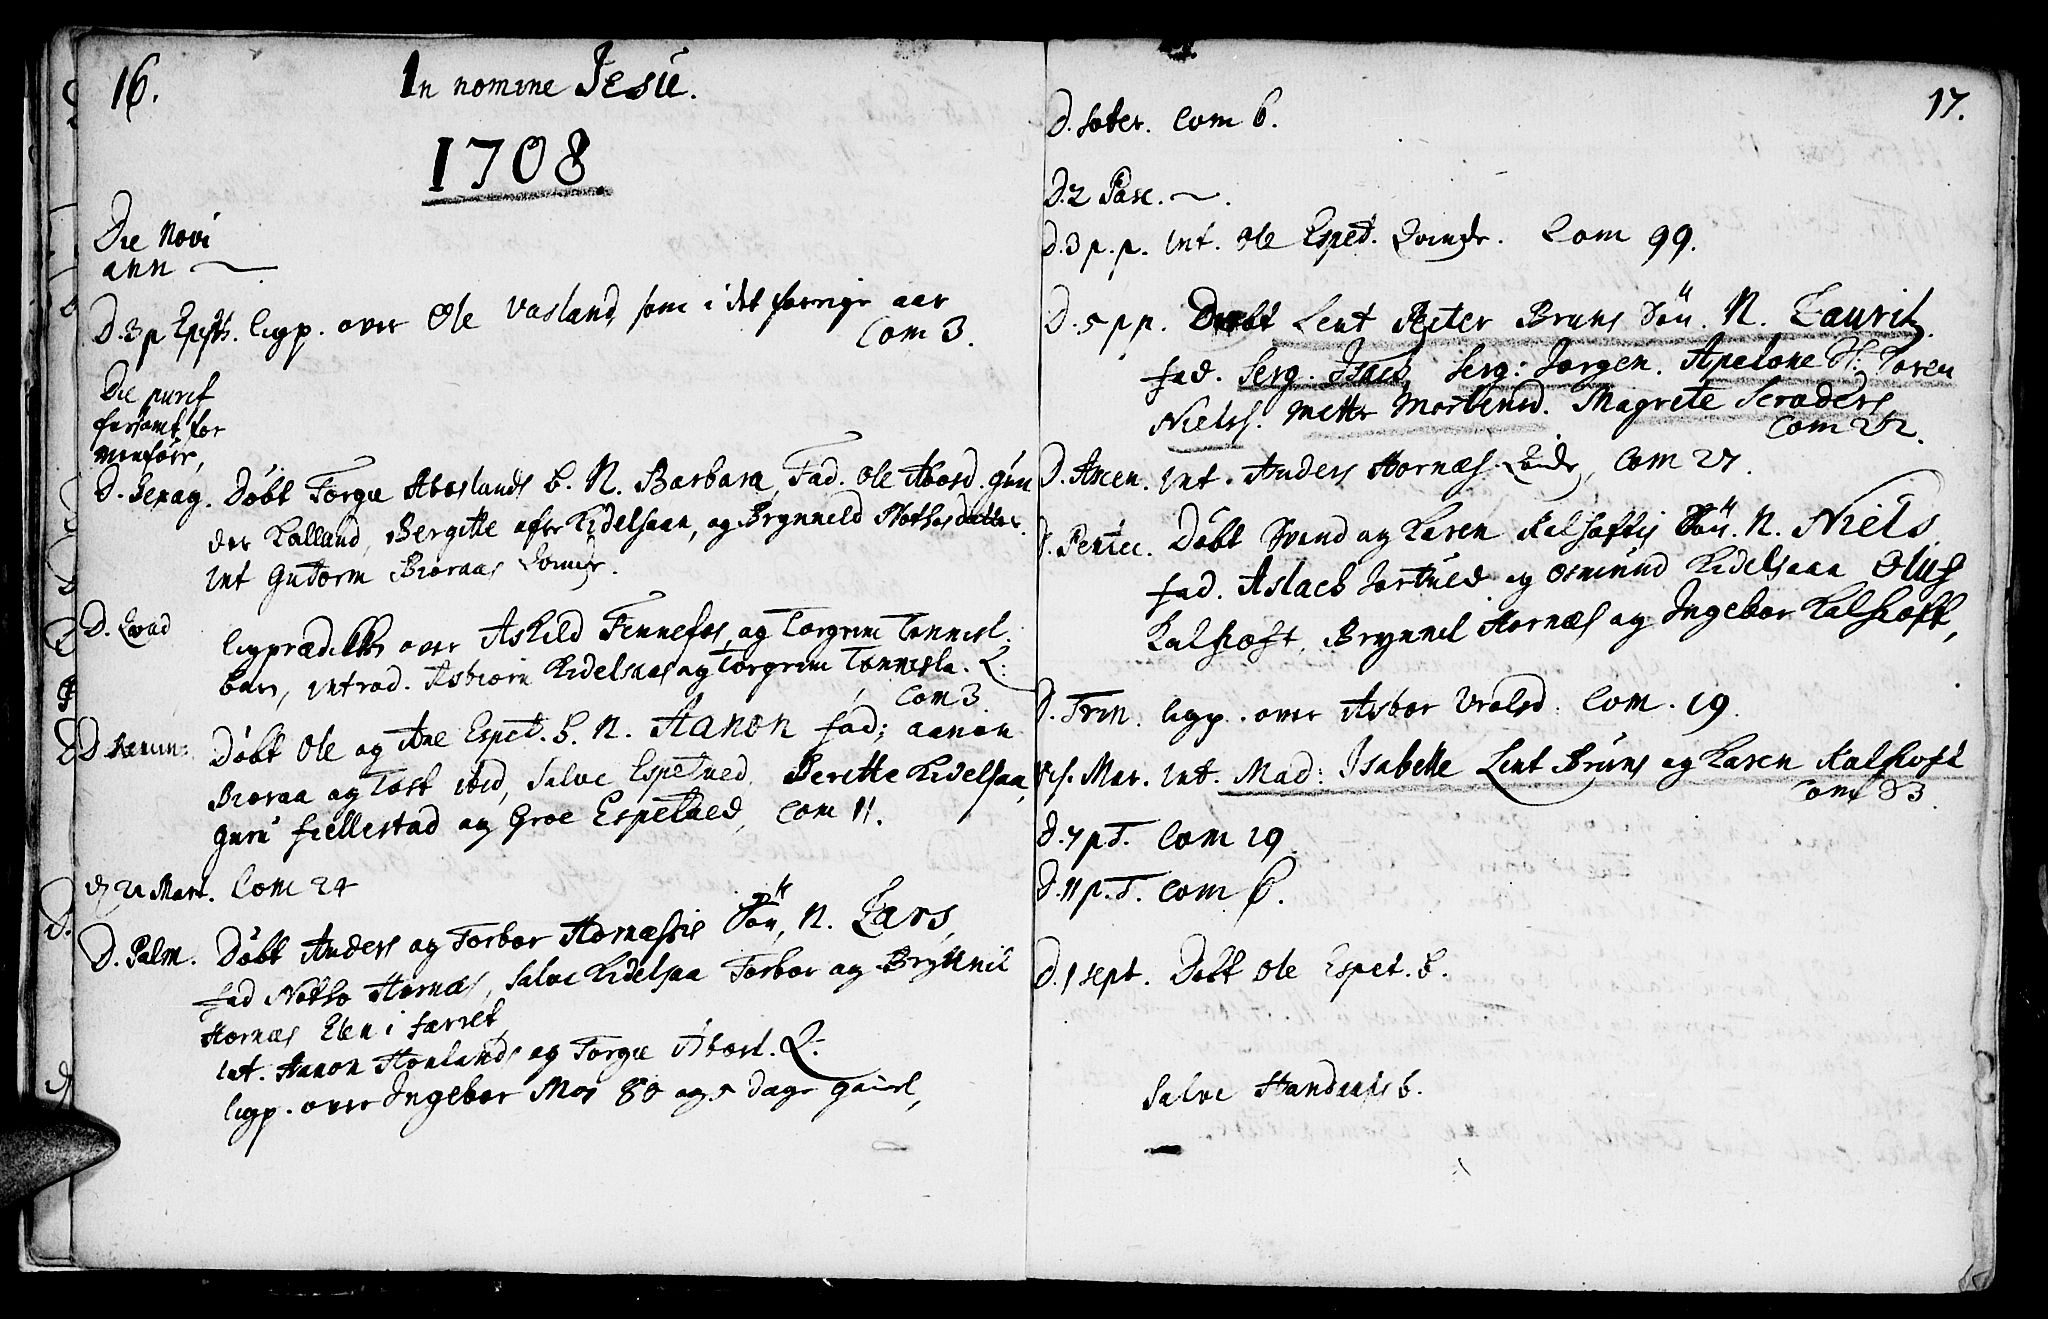 16.
In nomine Jesu.
1708
Die Novi
ann
D. 3 p Epiph. ligp. over Ole Vasland, som i det forrige aar
Com 3.
Die purif
forsømt for
D. Sexag. Døbt Torgu Abeslands b. N. Barbara, Fad. Ole Abosd. gun
der Kalland, Bergitte Kidelsaan, og Brynneld Nothos datter.
Int Gutorm Bioraas Qvinde.
D. Qvad
ligprædik over Askild Fennefos, og Torgrim Tonnesl.
barn, introd. Asbiorn Kidelsaas og Torgrim Tonnesla. Q:
Com 3.
Døbt Ole og Ane Espet. b. N. Aanon fad; aanon
Bioraa og Tost ibid, Salve Espetved, Berette Kidelsaa,
guru fiellestad og Groe Espetved, Com 11.
d 21 Mart. Com 24
D. Palm. Døbt Anders og Torbor Hornæssis Søn, N. Lars,
fad Notho Hornæs, Salve Kidelsaa Torbor og Bryttnil
Hornæs Elen i færset,
Int. Aanon Honlands og Torgu Abosl. Q:
ligp. over Ingebor Mos 80 og 5 dage gaml,
17.
D. Sober. Com 6.
D. 2 Pasc.
D. 3 p. p. Int. Ole Espet. Qvinde. Com 99.
D. 5 p p. Døbt Leut Peiter Bruns Søn. N. Laurits.
fad. Serg. Isach, Serg: Jorgen. Apelone S: Soren
Nielss. Mette Mortensd. Magrete Scraders
Com 22.
D. Ascen. Int. Anders Hornæs Qvinde, Com 27.
D. Pentec. Døbt Svend og Karen Kalhoftis Søn. N. Niels.
fad. Aslach Jortved og Osmund Kidelsaaa Oluf
Kalhoft, Brynnil Hornæs og Ingebor Kalhoft,
D. Trin. ligp. over Asbor Uvelsd. Com. 19.
Vis. Mar. Int. Mad: Isabelle Leut Bruns og Karen Kalhoft
Com 33.
D. 7 p T. Com 19.
D. 11 p. T. Com 6.
D. 1 sept. Døbt Ole Espet. b.
Salve b.